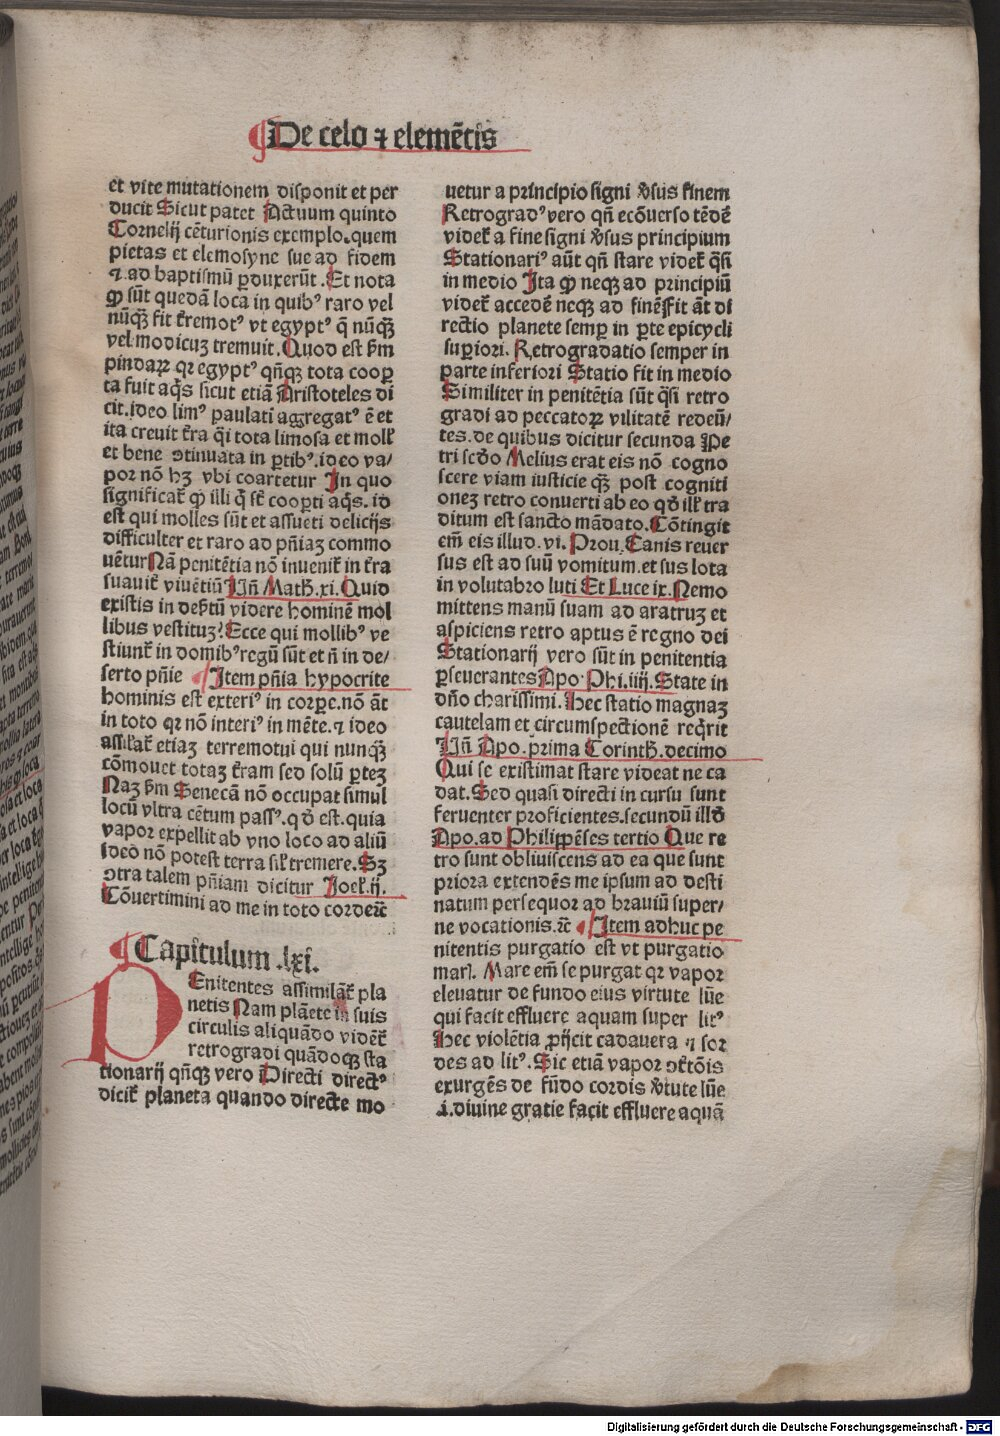 ¶De celo ⁊ elemētis
et vite mutationem disponit et per
ducit Sicut patet Actuum quinto
Cornelij cēturionis exemplo.quem
pietas et elemosyne sue ad fidem
⁊.ad baptismū ꝑduxerūt .Et nota
ꝙ sūt quedā loca in quibꝰ raro vel
nūqꝫ fit t̄remotꝰ vt egyptꝰ q̄ nūqꝫ
vel modicuꝫ tremuit. Quod est ẜm
pindarꝝ qꝛ egyptꝰ qn̄qꝫ tota cooꝑ
ta fuit aq̄s sicut etiā Aristoteles di
cit.ideo limꝰ paulati aggregatꝰ ē et
ita creuit t̄ra q̄i tota limosa et moll̄
et bene ꝯtinuata in ꝑtibꝰ.ideo va/
por nō hꝫ vbi coartetur In quo
significat̄ ꝙ illi q̄ sĉ cooꝑti aq̄s. id
est qui molles sūt et assueti delicijs
difficulter et raro ad pn̄iaꝫ commo
uētur Nā penitētia nō inuenit̄ in t̄ra
suauit̄ viuētiū Un̄ Math̄.xi. Quid
existis in deẜtū videre hominē mol
libus vestituꝫ? Ecce qui mollibꝰ ve
stiunt̄ in domibꝰ regū sūt et n̄ in de/
serto pn̄ie ¶Item pn̄ia hypocrite
hominis est exteriꝰ in corꝑe.nō āt
in toto qꝛ nō interiꝰ in mēte.⁊ ideo
assil̄at̄ etiaꝫ terremotui qui nunqꝫ
cōmouet totaꝫ t̄ram sed solū ꝑteꝫ
Naꝫ ẜm Senecā nō occupat simul
locū vltra cētum passꝰ.qd̄ est.quia
vapor expellit ab vno loco ad aliū
ideo nō potest terra sil̄ tremere. Sꝫ
ꝯtra talem pn̄iam dicitur Joel̄.ij.
Cōuertimini ad me in toto corde⁊c̄
¶Capitulum .lxi.
PEnitentes assimilāt̄ pla
netis Nam planete in suis
circulis aliquādo vident̄
retrogradi quādoqꝫ sta
tionarij qn̄qꝫ vero Directi directꝰ
dicit̄ planeta quando directe mo
uetur a principio signi ꝟsus finem
Retrogradꝰ vero qn̄ ecōuerso tēdē
videt̄ a fine signi ꝟsus principium
Stationariꝰ aūt qn̄ stare videt̄ q̄si
in medio Ita ꝙ neqꝫ ad principiū
videt̄ accedē neqꝫ ad finē. Fit āt di
rectio planete semꝑ in ꝑte epicycli
suꝑiori. Retrogradatio semper in
parte inferiori Statio fit in medio
Similiter in penitētia sūt q̄si retro
gradi ad peccatoꝝ vilitatē redeū/
tes.de quibus dicitur secunda Pe
tri scd̄o Melius erat eis nō cogno
scere viam iusticie qꝫ post cogniti
oneꝫ retro conuerti ab eo qd̄ ill̄ tra
ditum est sancto mādato. Cōtingit
em̄ eis illud.vi. Prou. Canis reuer
sus est ad suū vomitum.et sus lota
in volutabro luti Et Luce ix. Nemo
mittens manū suam ad aratruꝫ et
aspiciens retro aptus ē regno dei
Stationarij vero sūt in penitentia
ꝑseuerantes Apo. Phi.iiij. State in
dn̄o charissimi. Hec statio magnaꝫ
cautelam et circumspectionē req̄rit
Un̄ Apo.prima Corinth̄.decimo
Qui se existimat stare videat ne ca
dat. Sed quasi directi in cursu sunt
feruenter proficientes.secundū illd̄
Apo.ad Philippēses tertio Que re
tro sunt obliuiscens ad ea que sunt
priora extendēs me ipsum ad desti
natum persequor ad brauiū super/
ne vocationis.⁊c̄ ¶Item adhuc pe
nitentis purgatio est vt purgatio
maris. Mare em̄ se purgat qꝛ vapor
eleuatur de fundo eius virtute lūe
qui facit effluere aquam super litꝰ
Hec violētia ꝓijcit cadauera ⁊ sor
des ad litꝰ. Sic etiā vapor ꝯt̄tōis
exurgēs de fūdo cordis ꝟtute lūe
.i.diuine gratie facit effluere aquā
Digitalisierung gefördert durch die Deutsche Forschungsgemeinschaft - DFG